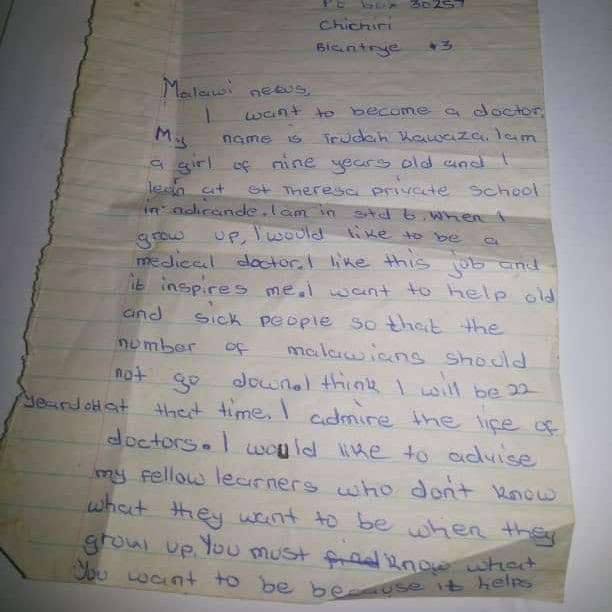 PO box 30257
Chichiri
Blantrye #3
Malawi news,
I want to become a doctor.
My name is Trudah Kawaza. I am
a girl of nine years old and I
lean at st Theresa private school
in ndirande. I am in std 6. When I
grow up, I would like to be a
medical doctor. I like this job and
it inspires me. I want to help old
and sick people so that the
number of malawians should
not go down. I think I will be 22
years old at that time. I admire the life of
doctors. I would like to advise
my fellow learners who don't know
what they want to be when they
grow up. You must find know what
you want to be because it helps